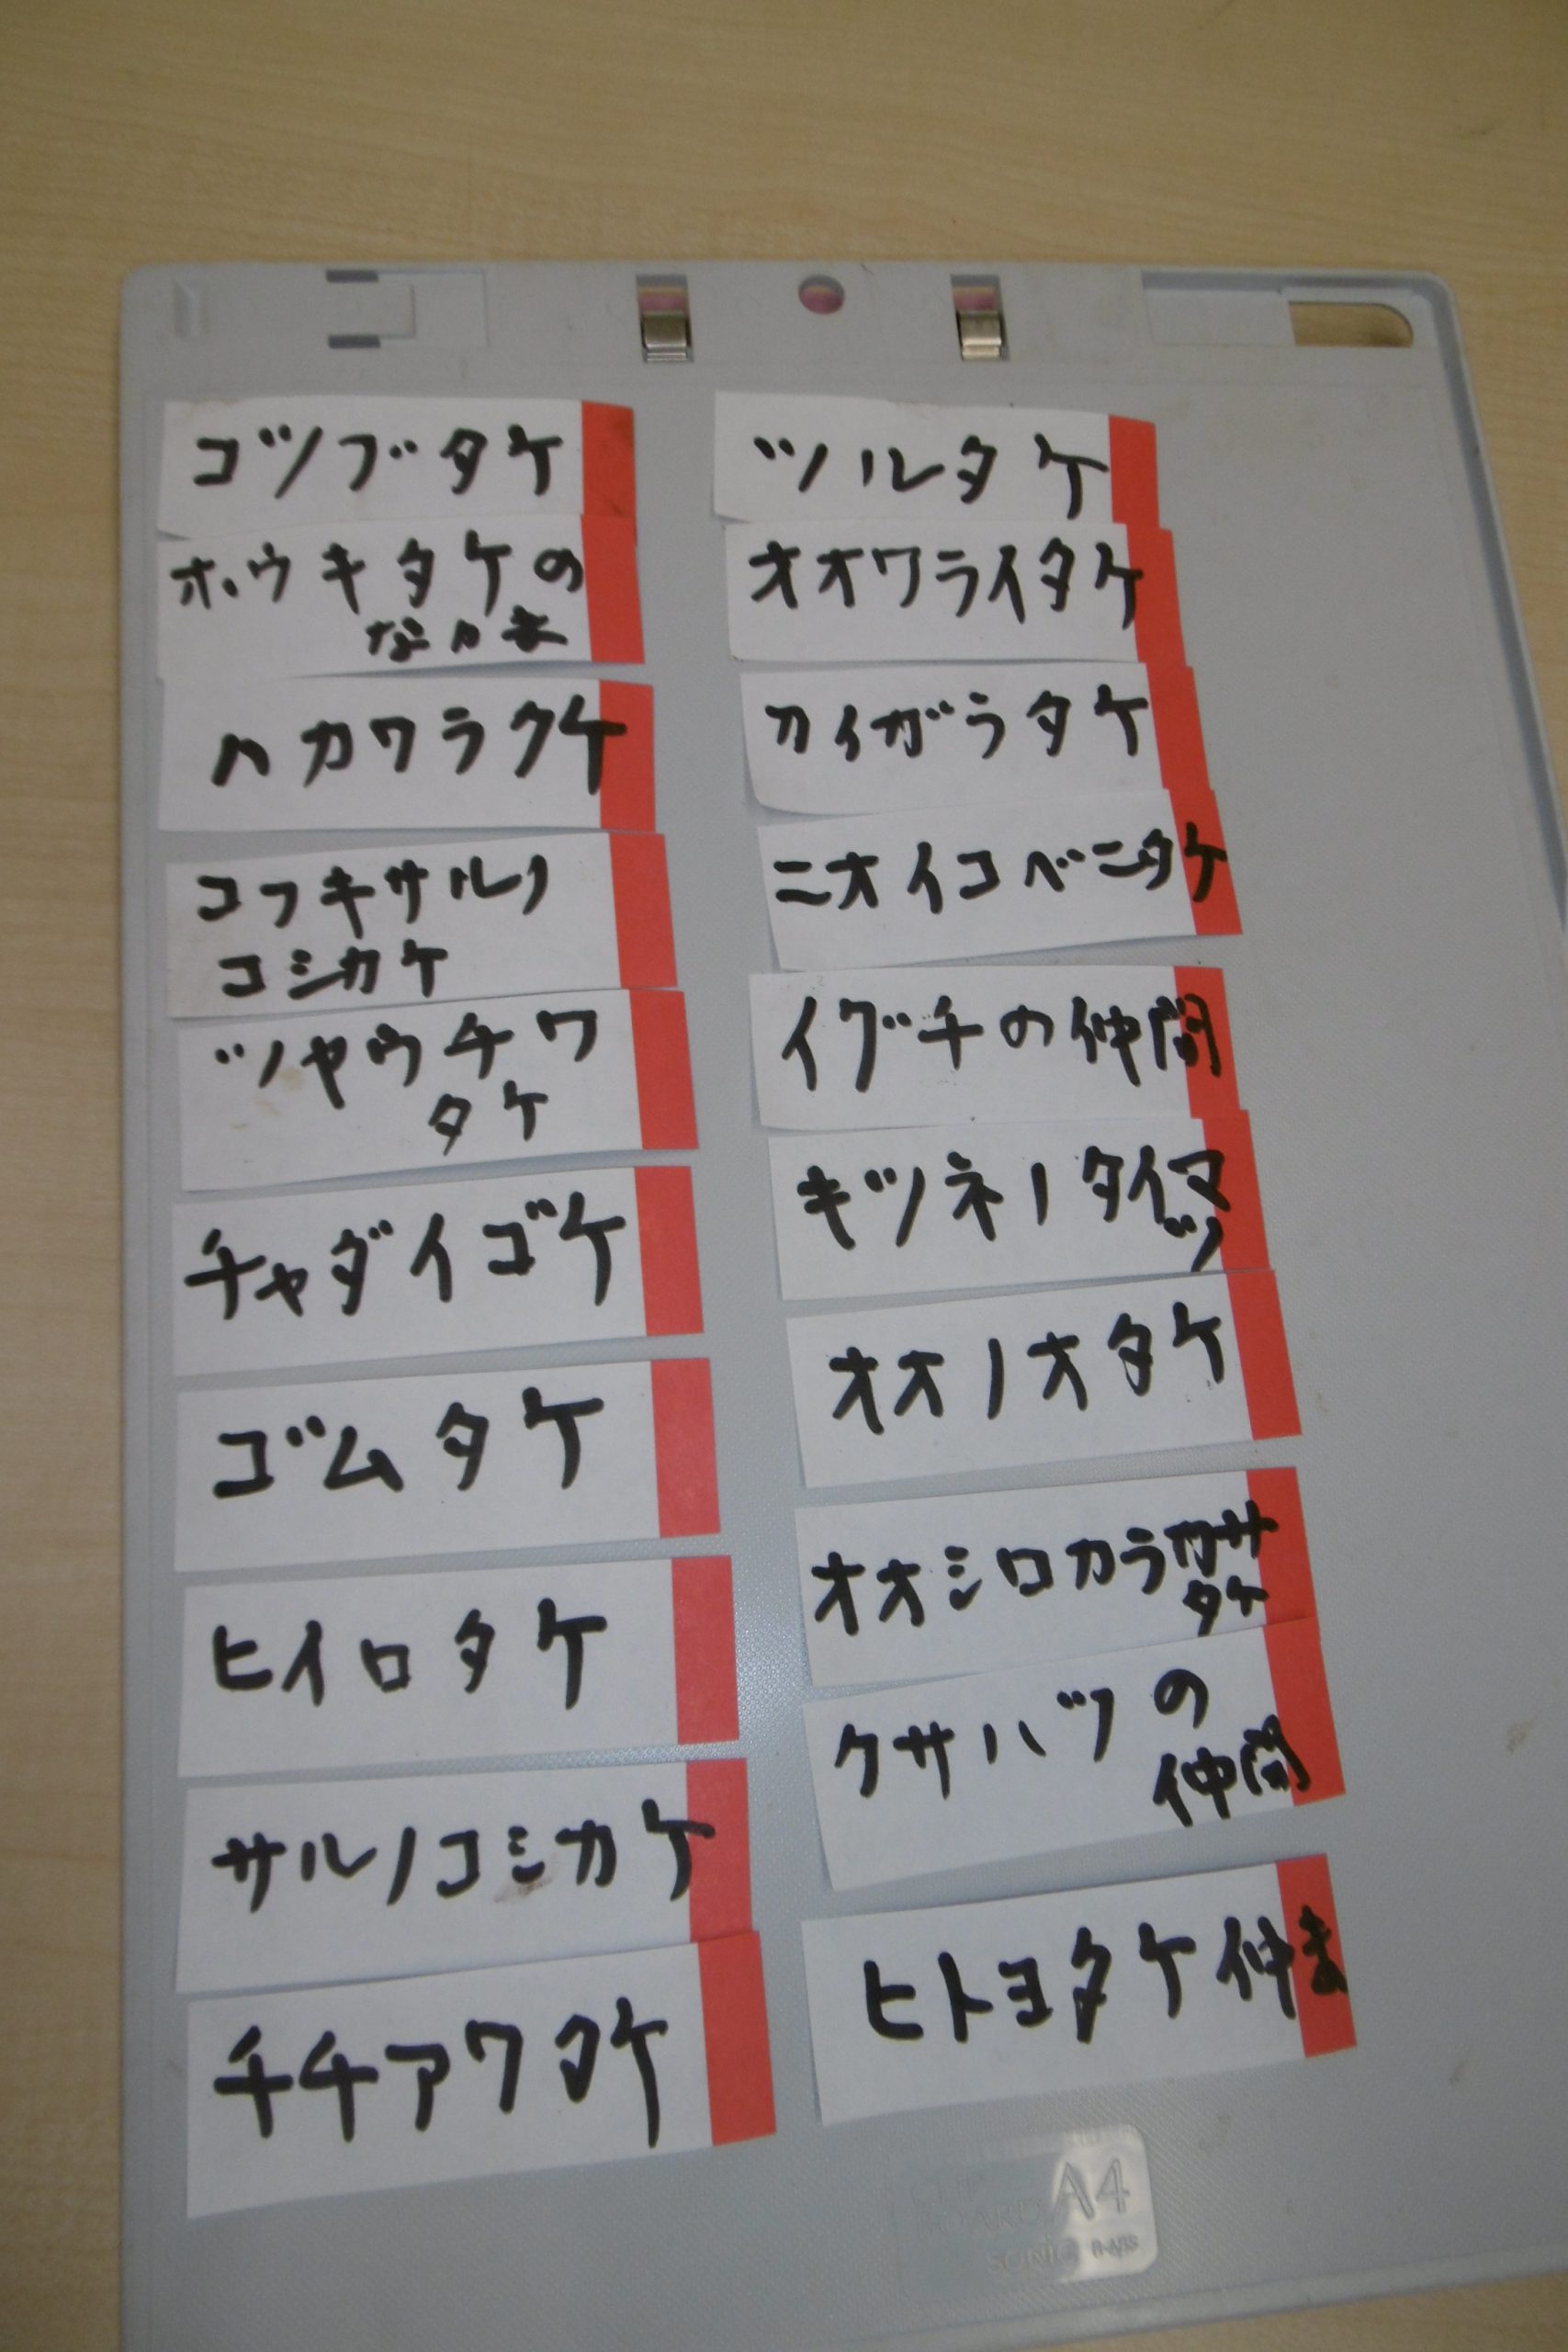 コツブタケ
ホウキタケの
なかま
ハカワラタケ
コフキサルノ
コシカケ
ツヤウチワ
タケ
チャダイゴケ
ゴムタケ
ヒイロタケ
サルノコシカケ
チチアワタケ
ツルタケ
オオワライタケ
カイガラタケ
ニオイコベニタケ
イグチの仲間
キツネノタイマ
ツ
オオノオタケ
オオシロカラカサ
タケ
クサハツの
仲間
ヒトヨタケ仲ま
CLIP
BOARD A4
SONIC R-ABS